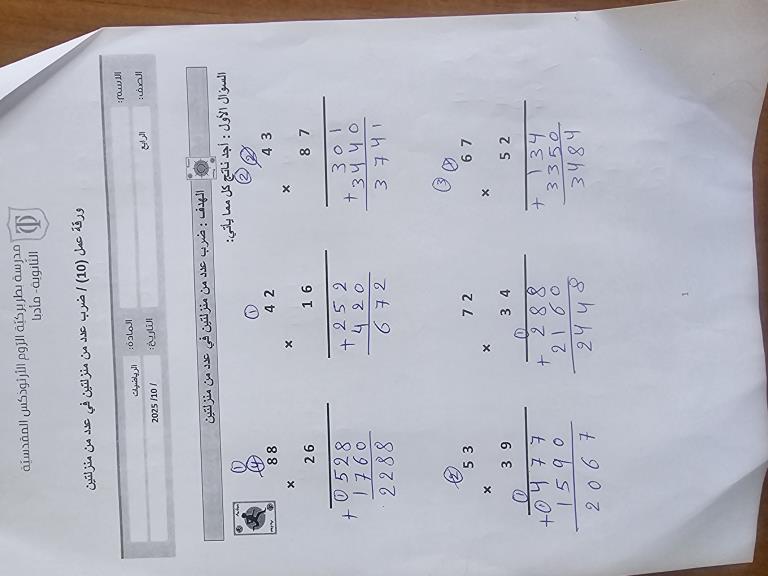 مدرسة بطريركية الروم الأرثوذكس المقدسية
الثانوية - مادبا
ورقة عمل (10) / ضرب عدد من منزلتين في عدد من منزلتين
الاسم:
المادة: الرياضيات
الصف: الرابع
التاريخ: 2025 /10/
الهدف : ضرب عدد من منزلتين في عدد من منزلتين
السؤال الأول : أجد ناتج كل مما يأتي:
① ① ② ②
④
88 42 43
× × ×
26 16 87
+ ① 528 + 252 301
1760 420 + 3440
2288 672 3741
② ③ ①
53 72 67
× × ×
39 34 52
① ①
+ ① 477 + 288 + 134
1590 2160 3350
2067 2448 3484
1